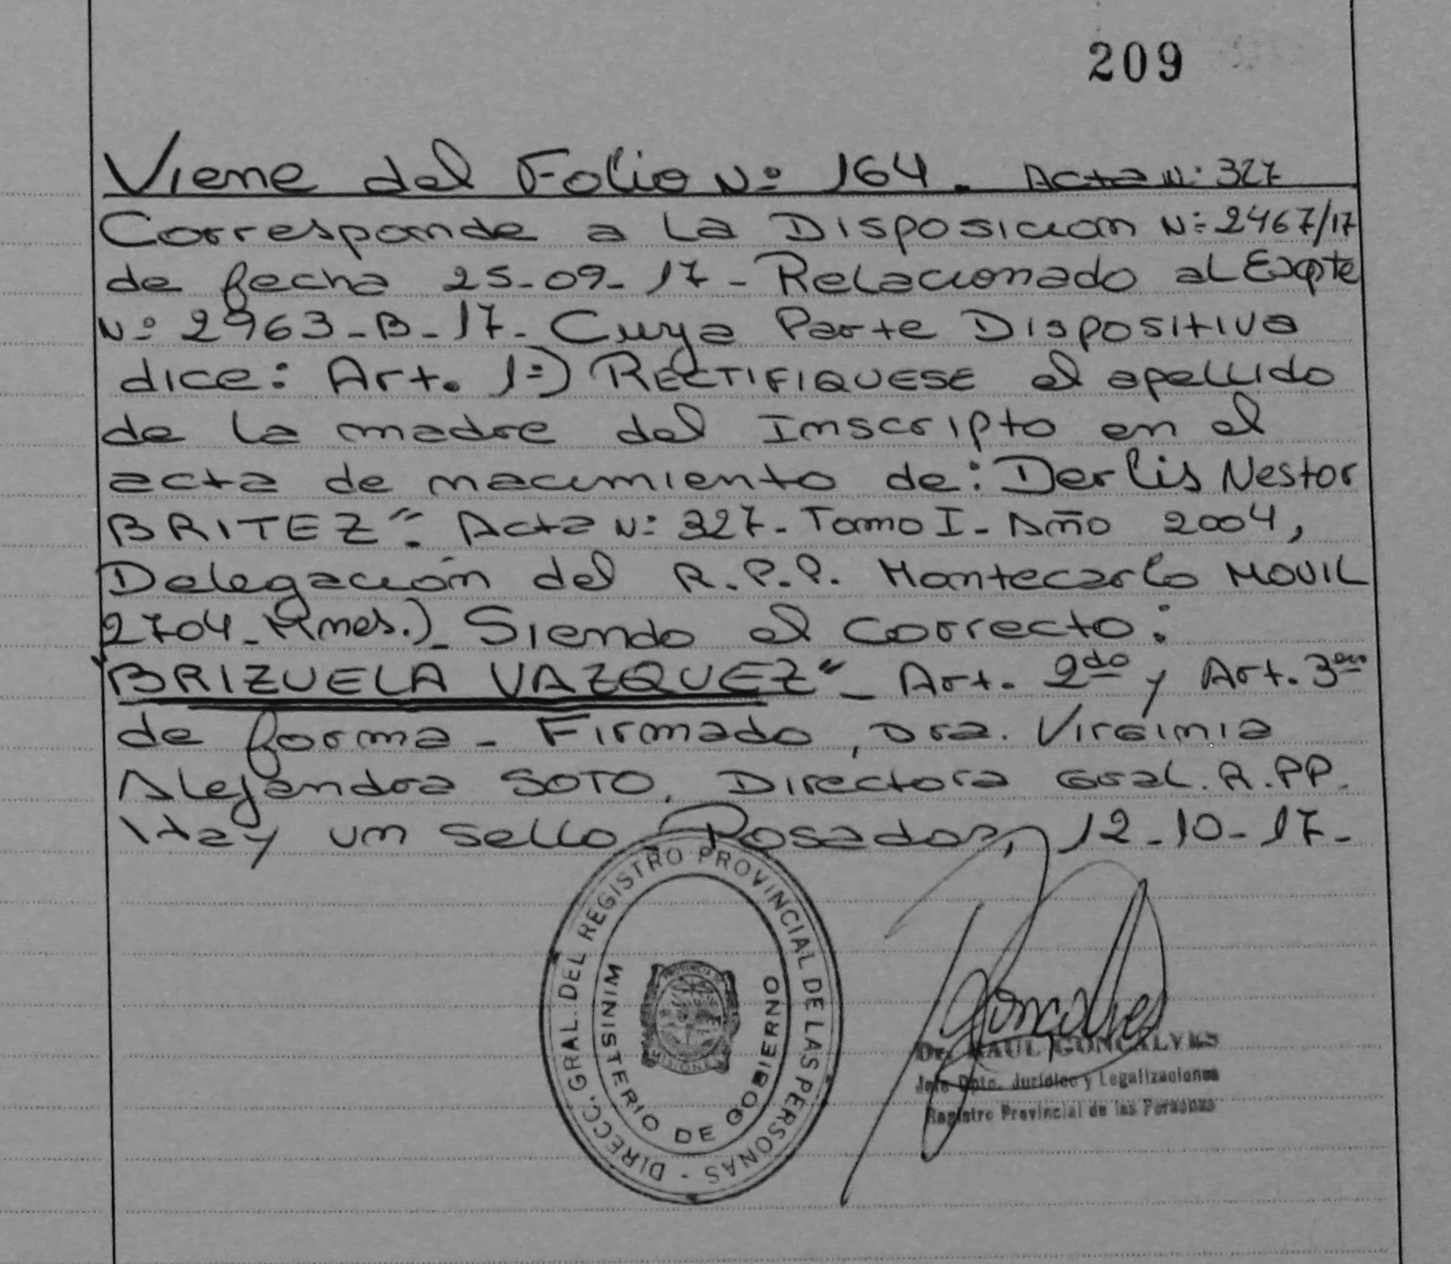 209
Viene del Folio Nº 164. Acta Nº 327
Corresponde a la Disposicion Nº 2467/17
de fecha 25-09-17 - Relacionado al Expte
Nº 2963-B-17- Cuya Parte Dispositiva
dice: Art. 1º) RECTIFIQUESE el apellido
de la madre del Inscripto en el
acta de nacimiento de: Derlis Nestor
BRITEZ". Acta Nº 327- Tomo I- Año 2004,
Delegación del R.P.P. Montecarlo MOVIL
2704-Mnes.)- Siendo el Correcto:
BRIZUELA VAZQUEZ"- Art. 2do y Art. 3ero
de forma - Firmado, Dra. Virginia
Alejandra SOTO. Directora Gral. R.PP.
Hay un sello Posadas, 12-10-17-
DIRECC. GRAL. DEL REGISTRO PROVINCIAL DE LAS PERSONAS -
MINISTERIO DE GOBIERNO
Dr. RAUL GONCALVES
Jefe Dpto. Jurídico y Legalizaciones
Registro Provincial de las Personas